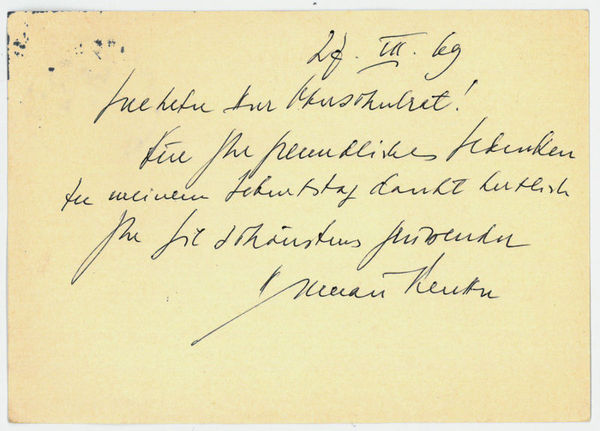 27. III. 69
Geehrter Herr Oberschulrat!
Für Ihr freundliches Gedenken
zu meinem Geburtstag dankt herzlich
Ihr Sie schönstens grüßender